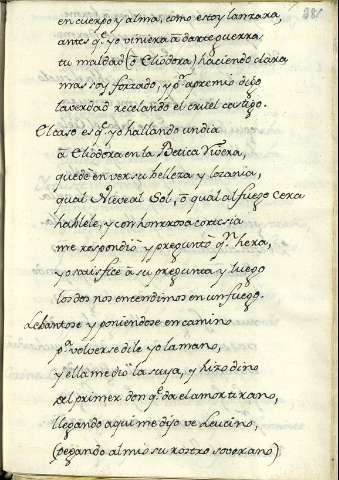 381
en cuerpo y alma, como estoy lanzara,
antes q̃. yo viniera à darte guerra;
tu maldad (ô Eliodora) haciendo clara
mas soy forzado, y pʳ. apremio digo
la verdad recelando el cruel castigo.
El caso es q̃. yo hallando un dia
à Eliodora en la Betica rivera,
quedè en ver su belleza y lozania,
qual Nieve al Sol, ô qual al fuego cera
hablèle, y con honrrosa cortesia
me respondiò y preguntò qⁿ. hera,
yo satisfice à su pregunta y luego
los dos nos encendimos en un fuego.
Lebantose y poniendose en camino
pʳ. volverse dile yo la mano,
y ella me diò la suya, y hizo dino
del primer don q̃. da el amor tirano,
llegando aqui me dijo ve Leucino,
(pegando al mio su rostro soverano)